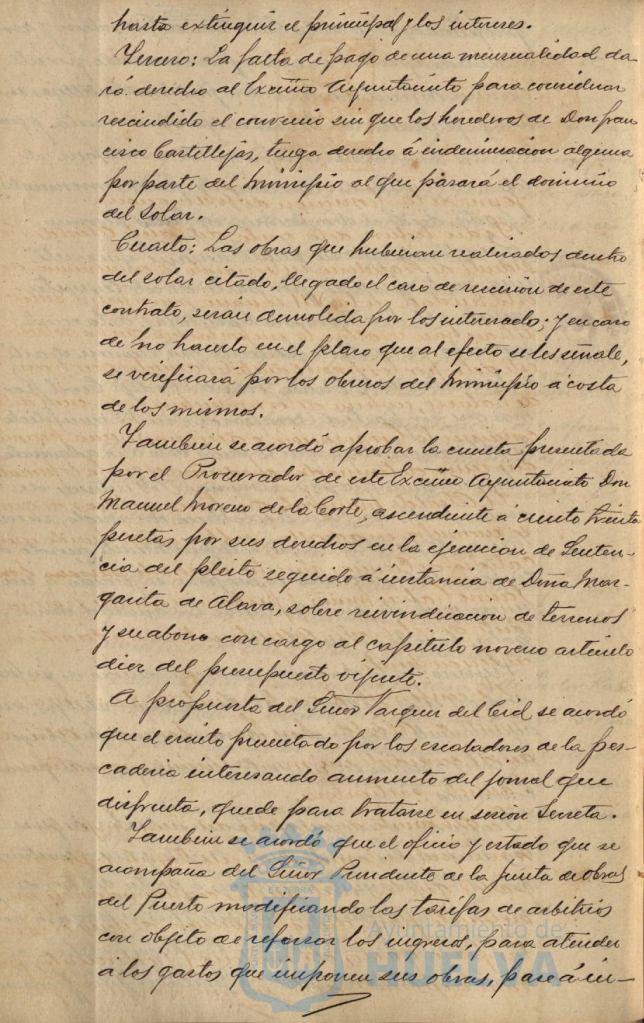 hasta extinguir el principal y los intereses.
Tercero: La falta de pago de una mensualidad da-
rá derecho al Excmo Ayuntamiento para considerar
rescindido el convenio sin que los herederos de Don Fran
cisco Castillejas, tenga derecho á indemnización alguna
por parte del Municipio al que pasará el dominio
del solar.
Cuarto: Las obras que hubieran realizados dentro
del solar citado, llegado el caso de rescisión de este
contrato, serán demolida por los interesados; y en caso
de no hacerlo en el plazo que al efecto se les señale,
se verificará por los obreros del Municipio á costa
de los mismos.
Tambien se acordó aprobar la cuenta presentada
por el Procurador de este Excmo Ayuntamiento Don
Manuel Moreno de la Corte, ascendente á ciento treinta
pesetas por sus derechos en la ejecucion de Senten-
cia del pleito seguido á instancia de Doña Mar-
garita de Alava, sobre reivindicacion de terrenos
y su abono con cargo al capitulo noveno articulo
diez del presupuesto vigente.
A propuesta del Señor Vazquez del Cid se acordó
que el escrito presentado por los escaladores de la pes-
caderia interesando aumento del jornal que
disfruta, quede para tratarse en sesion Secreta.
Tambien se acordó que el oficio y estado que se
acompaña del Señor Presidente de la Junta de obras
del Puerto modificando las tarifas de arbitrios
con objeto de reforzar los ingresos, para atender
á los gastos que imponen sus obras, pase á in-
Ayuntamiento de
HUELVA